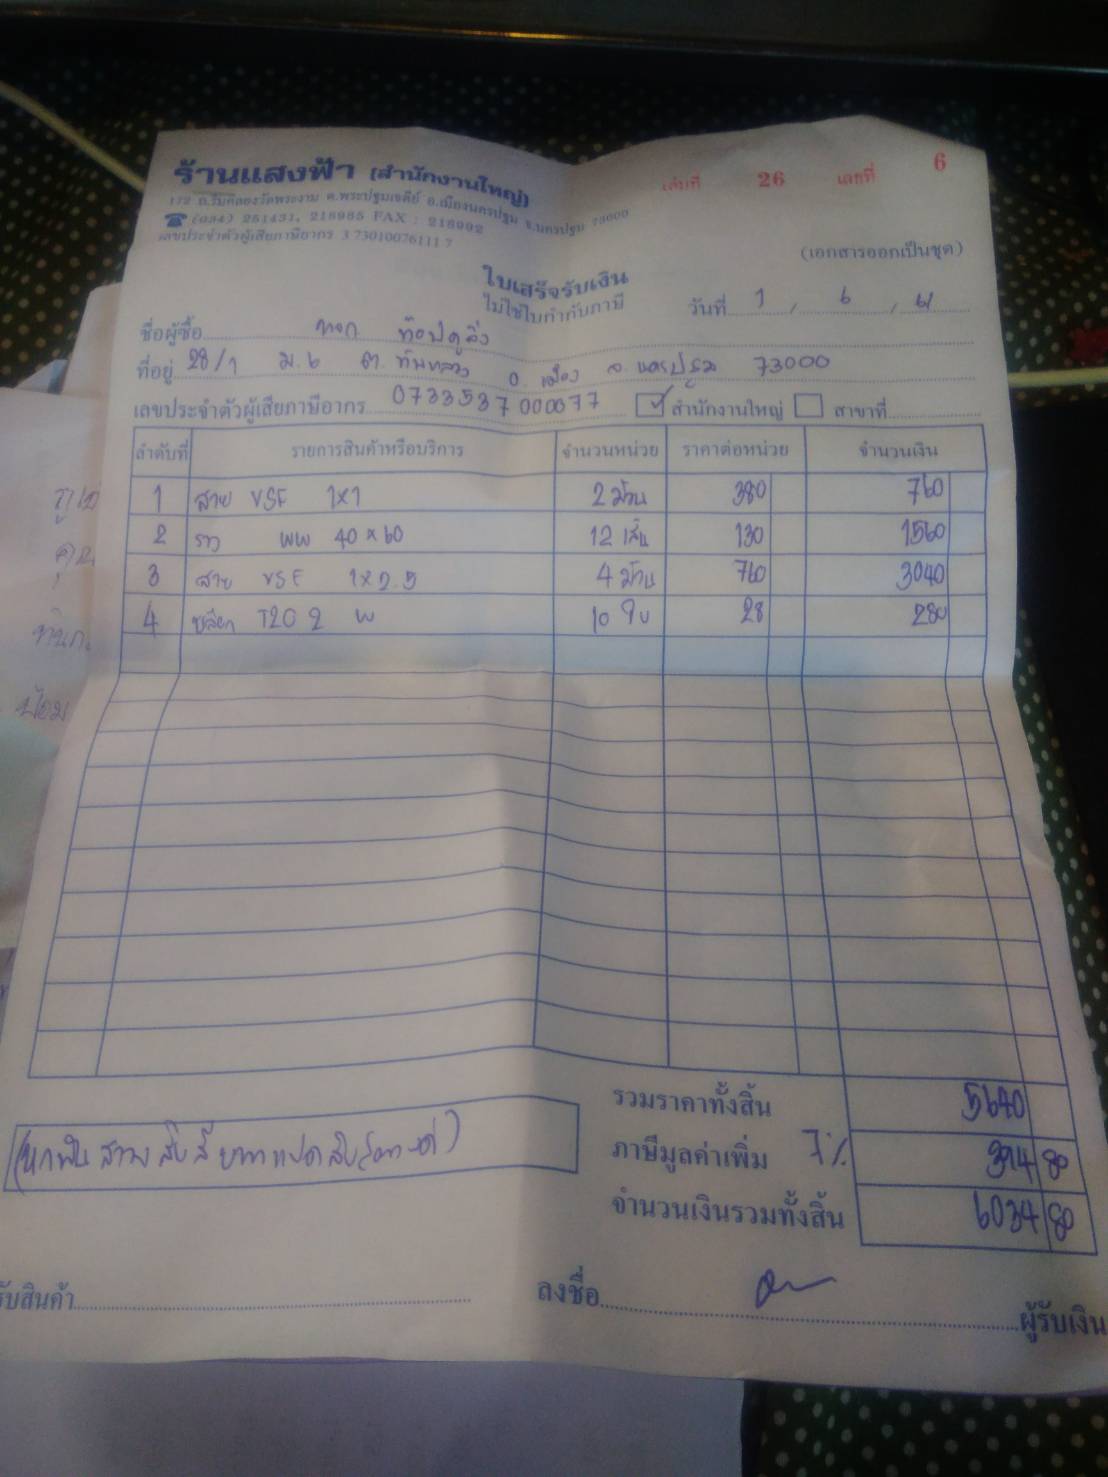 ร้านแสงฟ้า (สำนักงานใหญ่)
เล่มที่ 26 เลขที่ 6
172 ถ.ริมคลองวัดพระงาม ต.พระปฐมเจดีย์ อ.เมืองนครปฐม จ.นครปฐม 73000
☎ (034) 251431, 218985 FAX : 218992
เลขประจำตัวผู้เสียภาษีอากร 3 730100761117
(เอกสารออกเป็นชุด)
ใบเสร็จรับเงิน
ไม่ใช่ใบกำกับภาษี
วันที่ 1 / 6 / 61
ชื่อผู้ซื้อ หจก ท๊อปคูลิ่ง
ที่อยู่ 28/1 ม.6 ต. อ. เมือง จ. นครปฐม 73000
เลขประจำตัวผู้เสียภาษีอากร 0733537000077 สำนักงานใหญ่ สาขาที่
ลำดับที่ รายการสินค้าหรือบริการ จำนวนหน่วย ราคาต่อหน่วย จำนวนเงิน
1 สาย VSF 1x1 2 ม้วน 380 760
2 ราง WW 40 x 60 12 เส้น 130 1560
3 สาย VSF 1x2.5 4 ม้วน 760 3040
4 T20 2 W 10 ใบ 28 280
รวมราคาทั้งสิ้น 5640
(หกพันสามสิบสี่บาทแปดสิบสตางค์)
ภาษีมูลค่าเพิ่ม 7% 394 80
จำนวนเงินรวมทั้งสิ้น 6034 80
รับสินค้า
ลงชื่อ ผู้รับเงิน